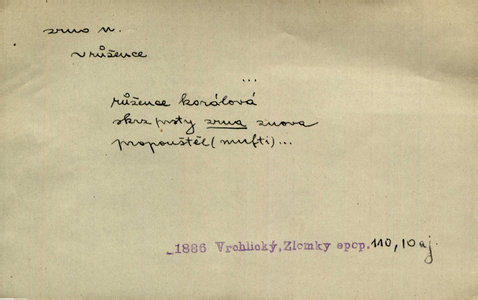 zrno n.
v růžence
...
růžence korálová
skrz prsty zrna znova
propouštěl (mufti)...
1886 Vrchlický, Zlomky epop. 110, 10 aj.